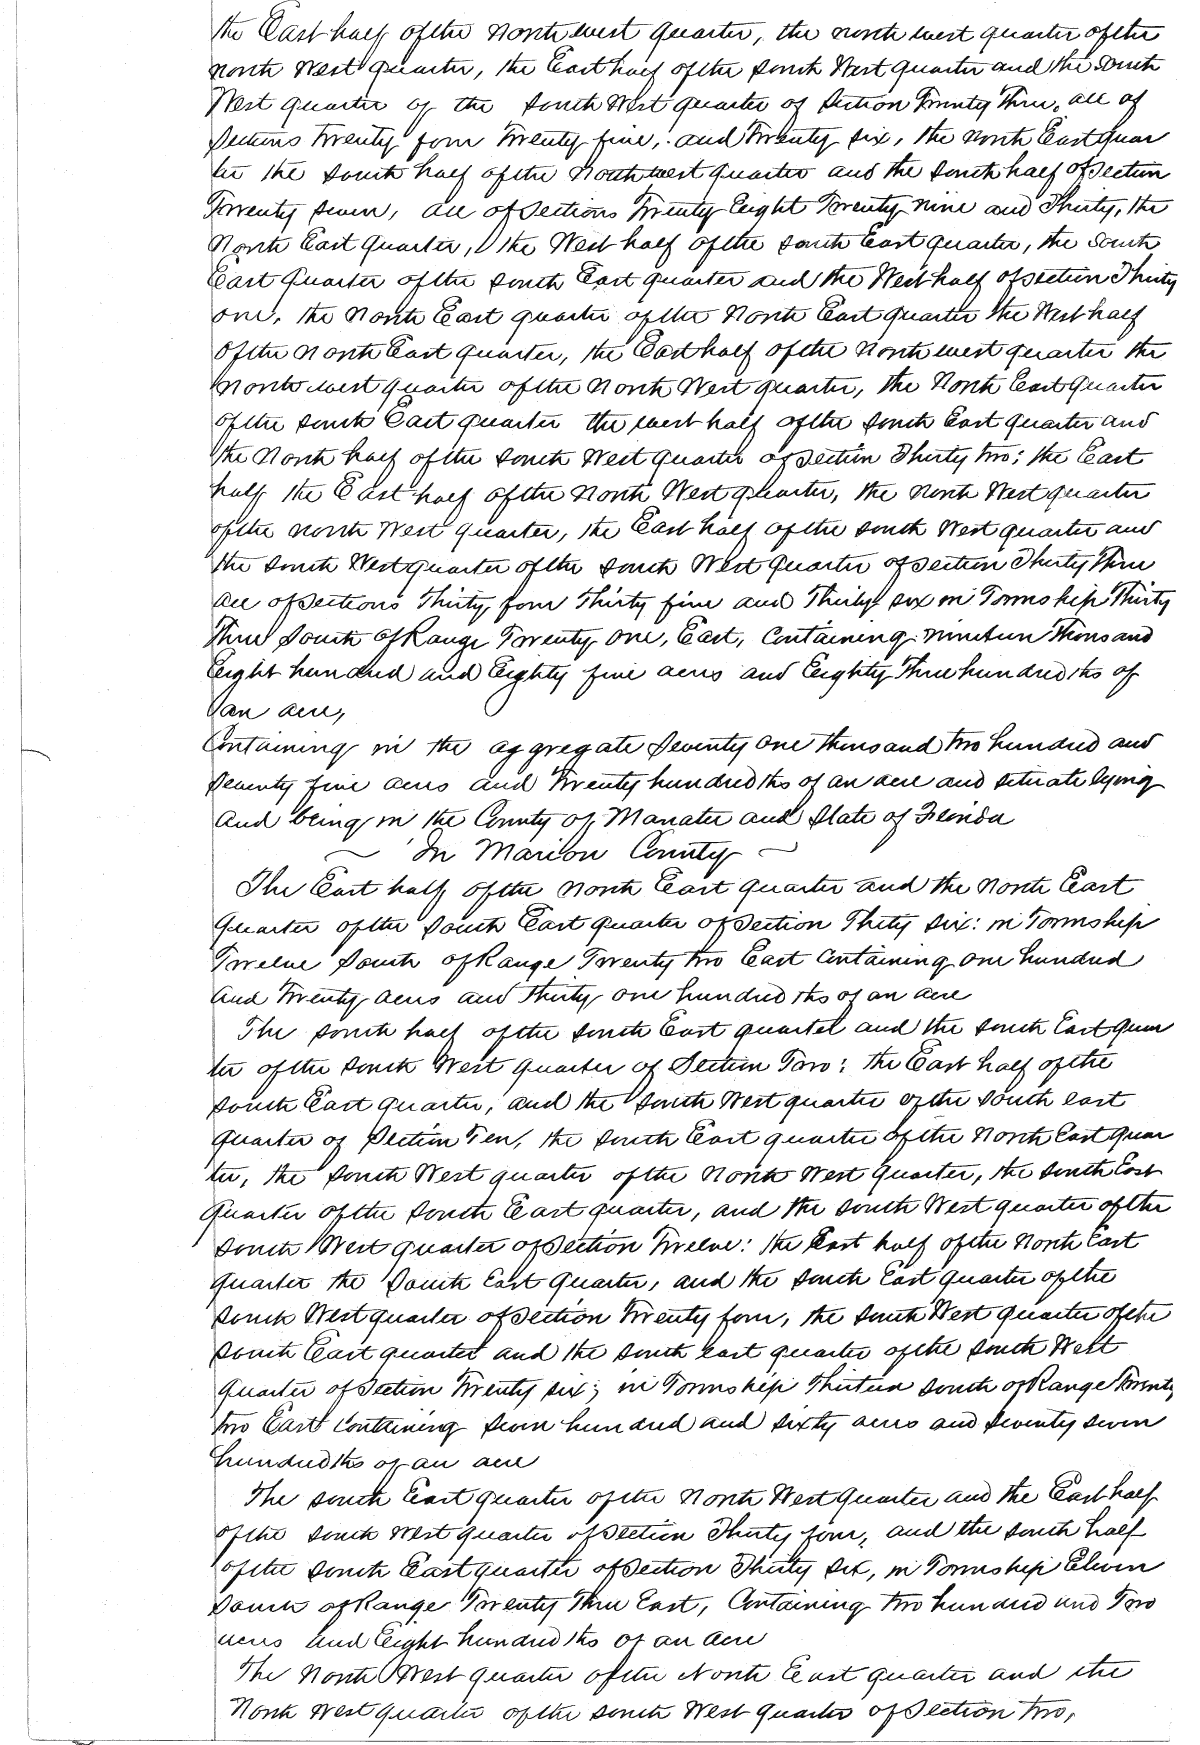 the East half of the North west quarter, the north west quarter of the
north West quarter, the East half of the South West quarter and the South
West quarter of the South West quarter of Section Twenty Three, all of
Sections Twenty four Twenty five, and Twenty six, the North East quar
ter the South half of the North west quarter and the South half of Section
Twenty Seven, all of Sections Twenty Eight Twenty nine and Thirty, the
North East quarter, the West half of the South East quarter, the South
East quarter of the South East quarter and the West half of Section Thirty
one, the North East quarter of the North East quarter the West half
of the North East quarter, the East half of the North west quarter the
North west quarter of the North West quarter, the North East quarter
of the South East quarter the west half of the South East quarter and
the North half of the South West quarter of Section Thirty two; the East
half the East half of the North West quarter, the North West quarter
of the North West quarter, the East half of the South West quarter and
the South West quarter of the South West quarter of Section Thirty Three
all of Sections Thirty four Thirty five and Thirty six in Township Thirty
Three South of Range Twenty one, East, Containing nineteen Thousand
Eight hundred and Eighty five acres and Eighty Three hundredths of
an acre,
Containing in the aggregate Seventy one thousand two hundred and
Seventy five acres and Twenty hundredths of an acre and situate lying
and being in the County of Manatee and State of Florida
~ In Marion County ~
The East half of the North East quarter and the North East
quarter of the South East quarter of Section Thirty six: in Township
Twelve South of Range Twenty two East Containing one hundred
and Twenty acres and Thirty one hundredths of an acre
The South half of the South East quarter and the South East quar
ter of the South West quarter of Section Two; the East half of the
South East quarter, and the South West quarter of the South east
quarter of Section Ten, the South East quarter of the North East quar
ter, the South West quarter of the North West quarter, the South East
quarter of the South East quarter, and the South West quarter of the
South West quarter of Section Twelve: the East half of the North East
quarter the South East quarter, and the South East quarter of the
South West quarter of Section Twenty four, the South West quarter of the
South East quarter and the South east quarter of the South West
quarter of Section Twenty six; in Township Thirteen South of Range Twenty
two East Containing Seven hundred and sixty acres and Seventy seven
hundredths of an acre
The South East quarter of the North West quarter and the East half
of the South West quarter of Section Thirty four, and the South half
of the South East quarter of Section Thirty Six, in Township Eleven
South of Range Twenty Three East, Containing two hundred and Two
acres and Eight hundredths of an acre
The North West quarter of the North East quarter and the
North West quarter of the South West quarter of Section two,